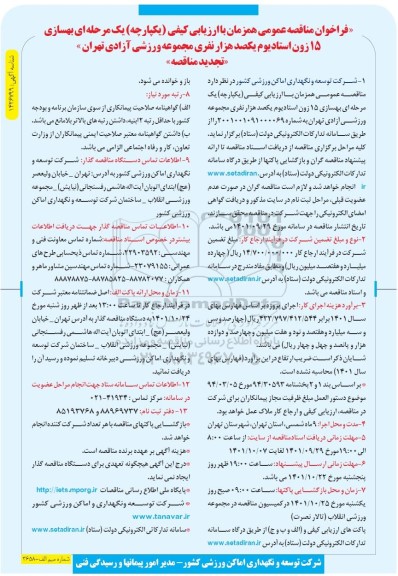 «فراخوان مناقصه عمومی همزمان با ارزیابی کیفی (یکپارچه) یک مرحله ای بهسازی
۱۵ زون استادیوم یکصد هزار نفری مجموعه ورزشی آزادی تهران»
«تجدید مناقصه»
۱- شرکت توسعه و نگهداری اماکن ورزشی کشور در نظر دارد
مناقصه عمومی همزمان با ارزیابی کیفی (یکپارچه) یک
مرحله ای بهسازی ۱۵ زون استادیوم یکصد هزار نفری مجموعه
ورزشی آزادی تهران به شماره
طریق سامانه تدارکات الکترونیکی دولت (ستاد) برگزار نماید.
کلیه مراحل برگزاری مناقصه از دریافت اسناد مناقصه تا ارائه
پیشنهاد مناقصه گران و بازگشایی پاکتها از طریق درگاه سامانه
تدارکات الکترونیکی دولت (ستاد) به آدرس www.setadiran.
ir انجام خواهد شد و لازم است مناقصه گران در صورت عدم
عضویت قبلی، مراحل ثبت نام در سایت مذکور و دریافت گواهی
امضای الکترونیکی را جهت شرکت در مناقصه محقق سازند.
تاریخ انتشار مناقصه در سامانه مورخ ۱۴۰۱/۰۹/۲۶ می باشد.
۲- نوع و مبلغ تضمین شرکت در فرآیند ارجاع کار: مبلغ تضمین
شرکت در فرآیند ارجاع کار ۱۴/۷۰۰/۰۰۰/۰۰۰ ریال (چهارده
میلیارد و هفتصد میلیون ریال) و مطابق مفاد مندرج در سامانه
تدارکات الکترونیکی دولت (ستاد) به آدرس www.setadiran.ir
و اسناد مناقصه می باشد.
۳- برآورد هزینه اجرای کار:
سال ۱۴۰۱ برابر ۴۳۳/۷۹۷/۴۱۲/۵۴۴ ریال (چهارصد و سی
و سه میلیارد و هفتصد و نود و هفت میلیون و چهارصد و دوازده
هزار و پانصد و چهل و چهار ریال) می باشد.
سال ۱۴۰۱) محاسبه شده است.
موضوع دستور العمل مبلغ ظرفیت مجاز پیمانکاران برای شرکت
در مناقصه، ارزیابی کیفی و ارجاع کار ملاک عمل خواهد بود.
۴- مدت و محل اجرا: ۹ ماه شمسی، استان تهران، شهرستان تهران
۵- مهلت زمانی دریافت اسناد مناقصه از سایت: از ساعت ۸:۰۰
الی ۱۹:۰۰ مورخ ۱۴۰۱/۰۹/۲۶ لغایت ۱۴۰۱/۱۰/۰۷
۶- مهلت زمانی ارسال پیشنهاد: ساعت ۱۹:۰۰ ظهر روز
پنجشنبه مورخ ۱۴۰۱/۱۰/۲۲ می باشد.
۷- زمان و محل بازگشایی پاکتها: ساعت ۰۹:۰۰ صبح روز
یکشنبه مورخ ۱۴۰۱/۱۰/۲۵ در کمیسیون مناقصه در مجموعه
ورزشی انقلاب (تالار نصرت)
پاکت های ارزیابی کیفی و (الف و ب و ج) از طریق درگاه سامانه
تدارکات الکترونیکی دولت (ستاد) به آدرس www.setadiran.ir
باز و خوانده می شود.
۸- رتبه مورد نیاز:
الف) گواهینامه صلاحیت پیمانکاری از سوی سازمان برنامه و بودجه
کشور با حداقل رتبه ۲ ابنیه، داشتن رتبه های بالاتر بلامانع می باشد.
ب) داشتن گواهینامه معتبر صلاحیت ایمنی پیمانکاران از وزارت
تعاون، کار و رفاه اجتماعی الزامی می باشد.
۹- اطلاعات تماس دستگاه مناقصه گذار: شرکت توسعه و
نگهداری اماکن ورزشی کشور به آدرس: تهران _ خیابان ولیعصر
(عج) ابتدای اتوبان آیت اله هاشمی رفسنجانی (نیایش) _ مجموعه
ورزشی انقلاب _ ساختمان شرکت توسعه و نگهداری اماکن
ورزشی کشور
۱۰- اطلاعات تماس مناقصه گذار جهت دریافت اطلاعات
بیشتر در خصوص اسناد مناقصه: شماره تماس معاونت فنی و
عمرانی: ۲۳۰۷۹۱۵۵ _ شماره تماس مهندسین مشاور ماهر و
۱۱- زمان و محل ارائه پاکت الف:
در فرآیند ارجاع کار تا ساعت ۱۳:۰۰ بعد از ظهر روز شنبه مورخ
۱۴۰۱/۱۰/۲۴ به دستگاه مناقصه گذار به آدرس تهران _ خیابان
ولیعصر (عج) _ ابتدای اتوبان آیت اله هاشمی رفسنجانی
(نیایش) _ مجموعه ورزشی انقلاب _ ساختمان شرکت توسعه
و نگهداری اماکن ورزشی _ دبیرخانه تسلیم نموده و رسید آن را
دریافت نمایید.
۱۲- اطلاعات تماس سامانه ستاد جهت انجام مراحل عضویت
در سامانه: مرکز تماس: ۴۱۹۳۴-۰۲۱
۱۳- دفتر ثبت نام: ۸۸۹۶۹۷۳۷ و ۸۵۱۹۳۷۶۸
*بازگشایی پاکتهای مناقصه با هر تعداد شرکت کننده انجام
خواهد شد.
*هزینه آگهی بر عهده برنده مناقصه است.
*درج این آگهی هیچگونه تعهدی برای دستگاه مناقصه گذار
ایجاد نمی نماید.
*پایگاه ملی اطلاع رسانی مناقصات http://iets.mporg.ir
*شرکت توسعه و نگهداری اماکن ورزشی کشور
www.tanavar.ir
*سامانه تدارکاتی الکترونیکی دولت (ستاد) www.setadiran.ir
شرکت توسعه و نگهداری اماکن ورزشی کشور – مدیر امور پیمانها و رسیدگی فنی